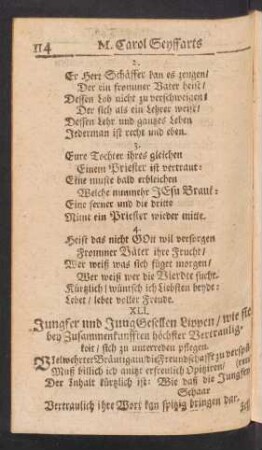 114 M. Carol Seyffarts
2.
Er Herr Schäffer kan es zeugen/
Der ein frommer Vater heist/
Dessen Lob nicht zu verschweigen/
Der sich als ein Lehrer weist/
Dessen Lehr und gantzes Leben
Jederman ist recht und eben.
3.
Eure Tochter ihres gleichen
Einem Priester ist vertraut:
Eine muste bald erbleichen
Welche nunmehr JEsu Braut:
Eine ferner und die dritte
Nimt ein Priester wieder mitte.
4.
Heist das nicht GOtt wil versorgen
Frommer Väter ihre Frucht/
Wer weiß was sich füget morgen/
Wer weiß wer die Vierdte sucht.
Kürtzlich/ wünsch ich Liebsten beyde:
Lebet/ lebet voller Freude.
XLI.
Jungfer und JungGesellen Lippen/ wie sie
bey Zusammenkunfften höchster Vertraulig-
keit/ sich zu unterreden pflegen.
Vielwehrter Bräutigam/ die Freundschafft zu
Muß billich ich anitzt erfreulich
Der Inhalt kürtzlich ist: Wie daß die Jungfern
Schaar
Vertraulich ihre Wort kan spitzig bringen dar.